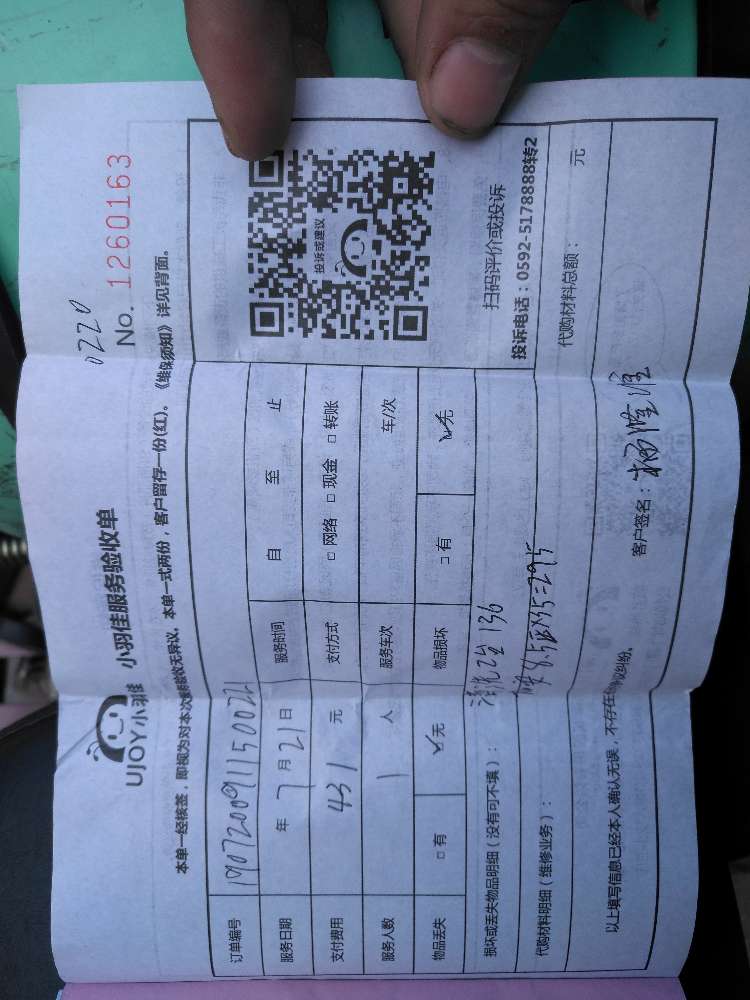 0220
No. 1260163
UJOY小羽佳 小羽佳服务验收单
本单一经核签，即视为对本次服务验收无异议。本单一式两份，客户留存一份(红)。《维保须知》详见背面。
订单编号 190720091150022
服务日期 年 7 月 21 日 服务时间 自 至 止
支付费用 431 元 支付方式 □ 网络 □ 现金 □ 转账
服务人数 1 人 服务车次 车/次
物品丢失 □ 有 ☑无 物品损坏 □ 有 ☑无
投诉或建议
扫码评价或投诉
投诉电话：0592-5178888转2
损坏或丢失物品明细（没有可不填）： 136
代购材料明细（维修业务）： 8.5 X35=295
代购材料总额： 元
以上填写信息已经本人确认无误，不存在争议纠纷。 客户签名：